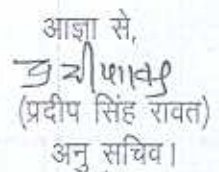 आज्ञा से,
(प्रदीप सिंह रावत)
अनु सचिव।